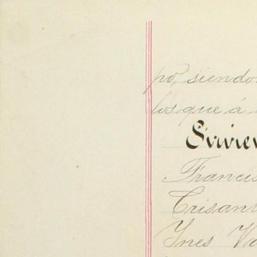 po, siendo
los que á
Sirvien
Francis
Crisan
Ynes Va